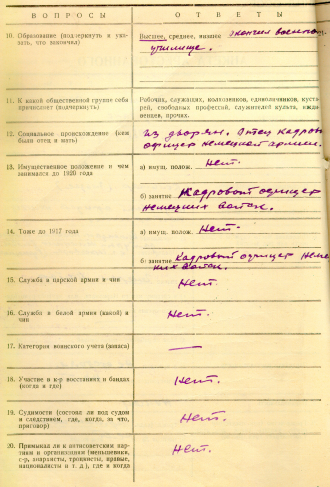 ВОПРОСЫ
ОТВЕТЫ
10. Образование (подчеркнуть и ука-
зать, что закончил)
Высшее, среднее, низшее окончил военное
училище.
11. К какой общественной группе себя
причисляет (подчеркнуть)
Рабочих, служащих, колхозников, единоличников, куста-
рей, свободных профессий, служителей культа, ижди-
венцев, прочих.
12. Социальное происхождение (кем
были отец и мать)
Из дворян. Отец кадров.
офицер немецкой армии.
13. Имущественное положение и чем
занимался до 1920 года
а) имущ. полож. Нет.
б) занятие Кадровой офицер
немецких войск.
14. Тоже до 1917 года
а) имущ. полож. Нет.
б) занятие Кадровой офицер немец-
ких войск.
15. Служба в царской армии и чин
Нет.
16. Служба в белой армии (какой) и
чин
Нет.
17. Категория воинского учета (запаса)
—
18. Участие в к-р восстаниях и бандах
(когда и где)
Нет.
19. Судимости (состоял ли под судом
и следствием, где, когда, за что,
приговор)
Нет.
20. Примыкал ли к антисоветским пар-
тиям и организациям (меньшевики,
с-р, анархисты, троцкисты, правые,
националисты и т. д.), где и когда
Нет.